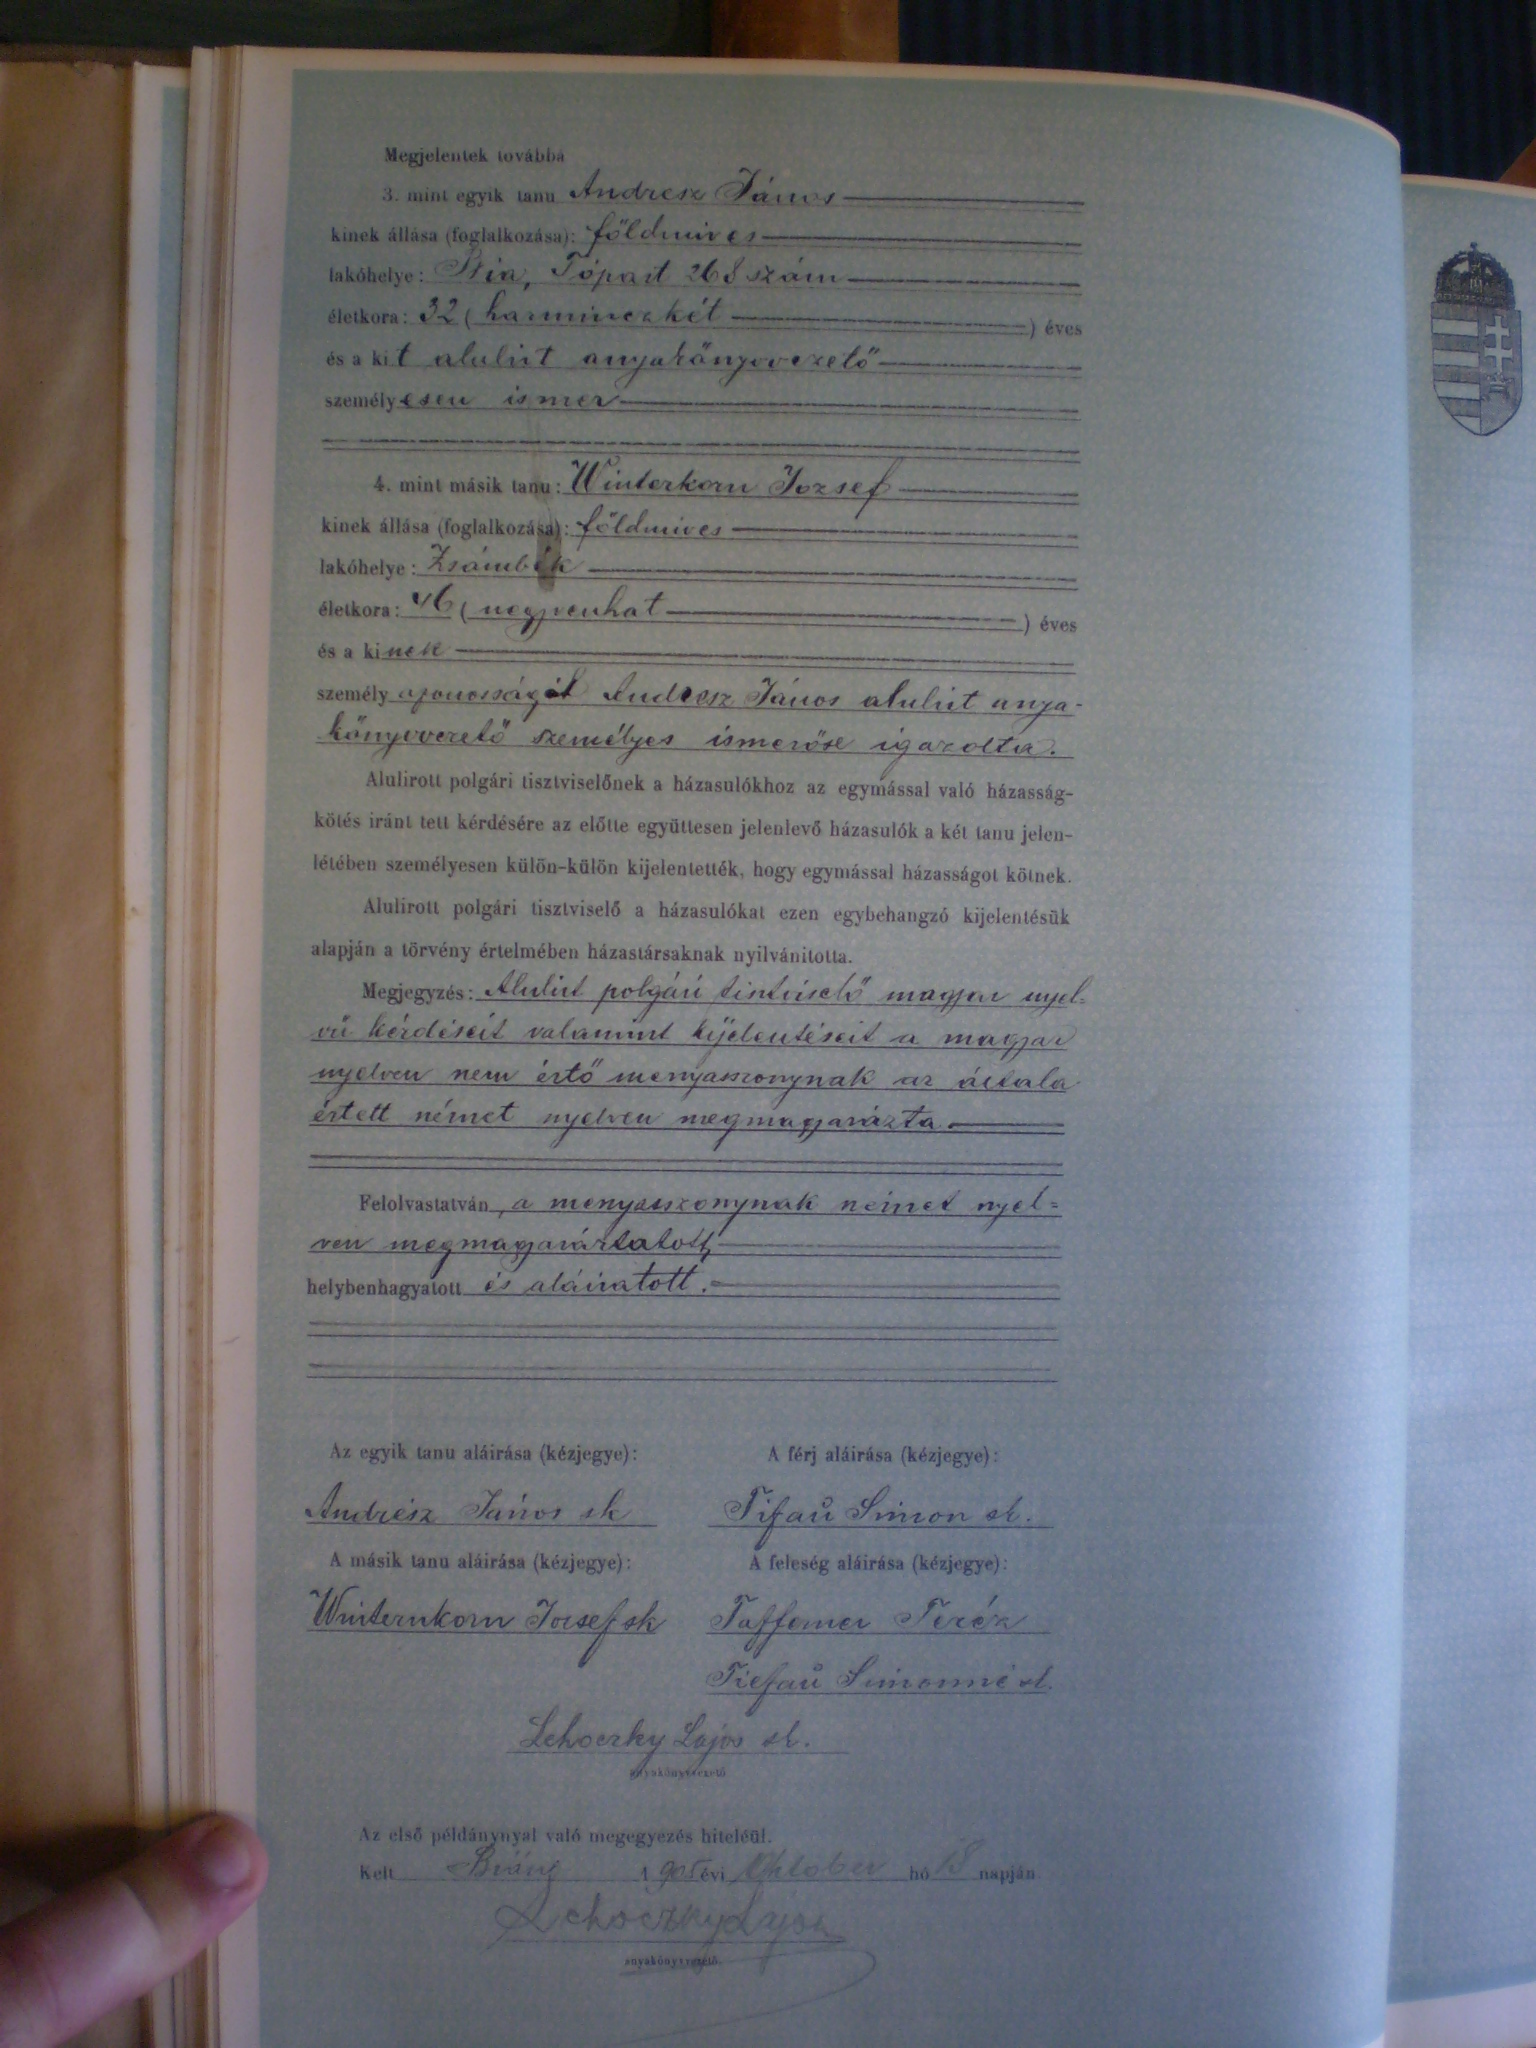 Megjelentek továbbá
3. mint egyik tanu Andresz János
kinek állása (foglalkozása): földmives
lakóhelye: Bia, Tópart 268 szám
életkora: 32 (harminczkét) éves
és a kit alulirt anyakönyvvezető
személyesen ismer
4. mint másik tanu: Winterkorn József
kinek állása (foglalkozása): földmives
lakóhelye: Zsámbék
életkora: 46 (negyvenhat) éves
és a kinek
személyazonosságát Andresz János alulirt anya-
könyvvezető személyes ismerőse igazolta.
Alulirott polgári tisztviselőnek a házasulókhoz az egymással való házasság-
kötés iránt tett kérdésére az előtte együttesen jelenlevő házasulók a két tanu jelen-
létében személyesen külön-külön kijelentették, hogy egymással házasságot kötnek.
Alulirott polgári tisztviselő a házasulókat ezen egybehangzó kijelentésük
alapján a törvény értelmében házastársaknak nyilvánitotta.
Megjegyzés: Alulirt polgári tisztviselő magyar nyel-
vű kérdéseit valamint kijelentéseit a magyar
nyelven nem értő menyasszonynak az általa
értett német nyelven megmagyarázta.
Felolvastatván, a menyasszonynak német nyel=
ven megmagyaráztatott,
helybenhagyatott és aláiratott.
Az egyik tanu aláirása (kézjegye): A férj aláirása (kézjegye):
Andrész János sk Tifau Simon sk.
A másik tanu aláirása (kézjegye): A feleség aláirása (kézjegye):
Winternkorn József sk Taffemer Teréz
Tiefau Simonné sk.
Lehoczky Lajos sk.
anyakönyvvezető
Az első példánynyal való megegyezés hiteléül.
Kelt 1905 évi Oktober hó 18 napján
Lehoczky Lajos
anyakönyvvezető.